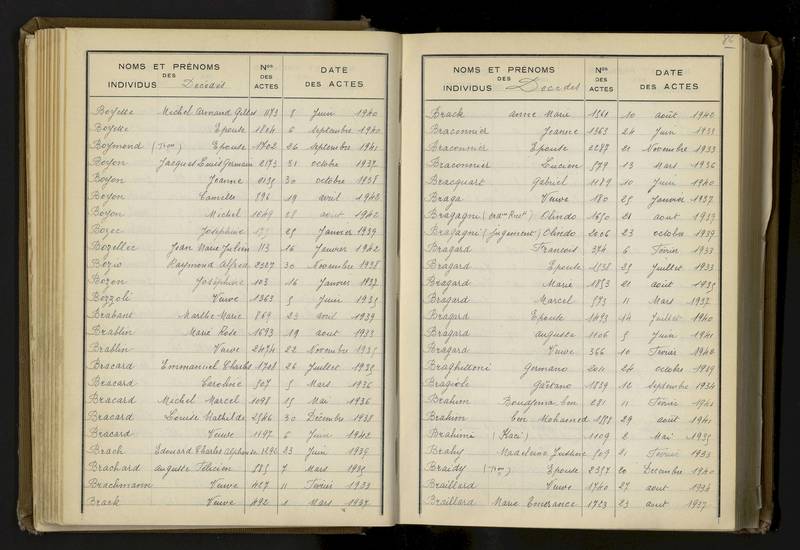 NOMS ET PRÉNOMS DES INDIVIDUS Décédés Nos DES ACTES DATE DES ACTES
Boyelle Michel Armand Gilles 1173 8 Juin 1940
Boyelle Epouse 1804 6 Septembre 1940
Boymond Epouse 1702 26 Septembre 1941
Boyon Jacques Louis Germain 2173 31 octobre 1937
Boyon Jeanne 2135 30 octobre 1938
Boyon Camille 896 19 avril 1942
Boyon Michel 1049 28 avril 1942
Bozec Joséphine 25 Janvier 1939
Bozellec Jean Marie Julien 113 16 Janvier 1942
Bozio Raymond Alfred 2327 30 Novembre 1938
Bozon Joséphine 103 16 Janvier 1937
Bozzoli Veuve 1363 5 Juin 1935
Brabant Marthe Marie 869 23 avril 1939
Brablin Marie Rose 1693 19 aout 1933
Brablin Veuve 2474 22 Novembre 1935
Bracard Emmanuel Charles 1708 26 Juillet 1935
Bracard Caroline 507 5 Mars 1936
Bracard Michel Marcel 1098 25 Mai 1936
Bracard Louise Mathilde 2546 30 Décembre 1938
Bracard Veuve 1197 6 Juin 1942
Brach Edouard Charles Alphonse 1290 23 Juin 1936
Brachard Auguste Félicien 585 7 Mars 1935
Brachmann Veuve 427 11 Février 1933
Brack Veuve 492 1 Mars 1937
86
NOMS ET PRÉNOMS DES INDIVIDUS Décédés Nos DES ACTES DATE DES ACTES
Brack Anne Marie 1561 10 août 1940
Braconnier Jeanne 1363 24 Juin 1933
Braconnier Epouse 2287 21 Novembre 1933
Braconnier Lucien 579 13 Mars 1936
Bracquart Gabriel 1189 10 Juin 1940
Braga Veuve 180 25 Janvier 1937
Bragagni Olindo 1650 21 aout 1939
Bragagni (Jugement) Olindo 2006 23 octobre 1939
Bragard François 374 6 Février 1933
Bragard Epouse 1538 25 Juillet 1933
Bragard Marie 1853 21 août 1935
Bragard Marcel 573 11 Mars 1937
Bragard Epouse 1493 14 Juillet 1940
Bragard Augusta 1106 5 Juin 1941
Bragard Veuve 366 10 Février 1940
Braghettoni Germano 2011 24 octobre 1939
Bragiole Gaëtano 1839 12 Septembre 1934
Brahim Bougema ben 281 11 Février 1941
Brahim ben Mohamed 1588 29 août 1941
Brahimi (Kaci) 1109 2 Mai 1935
Brahy Madeleine Justine 509 21 Février 1933
Braidy Epouse 2357 20 Décembre 1940
Braillard Veuve 1740 27 aout 1934
Braillard Marie Emerance 1723 23 aout 1937